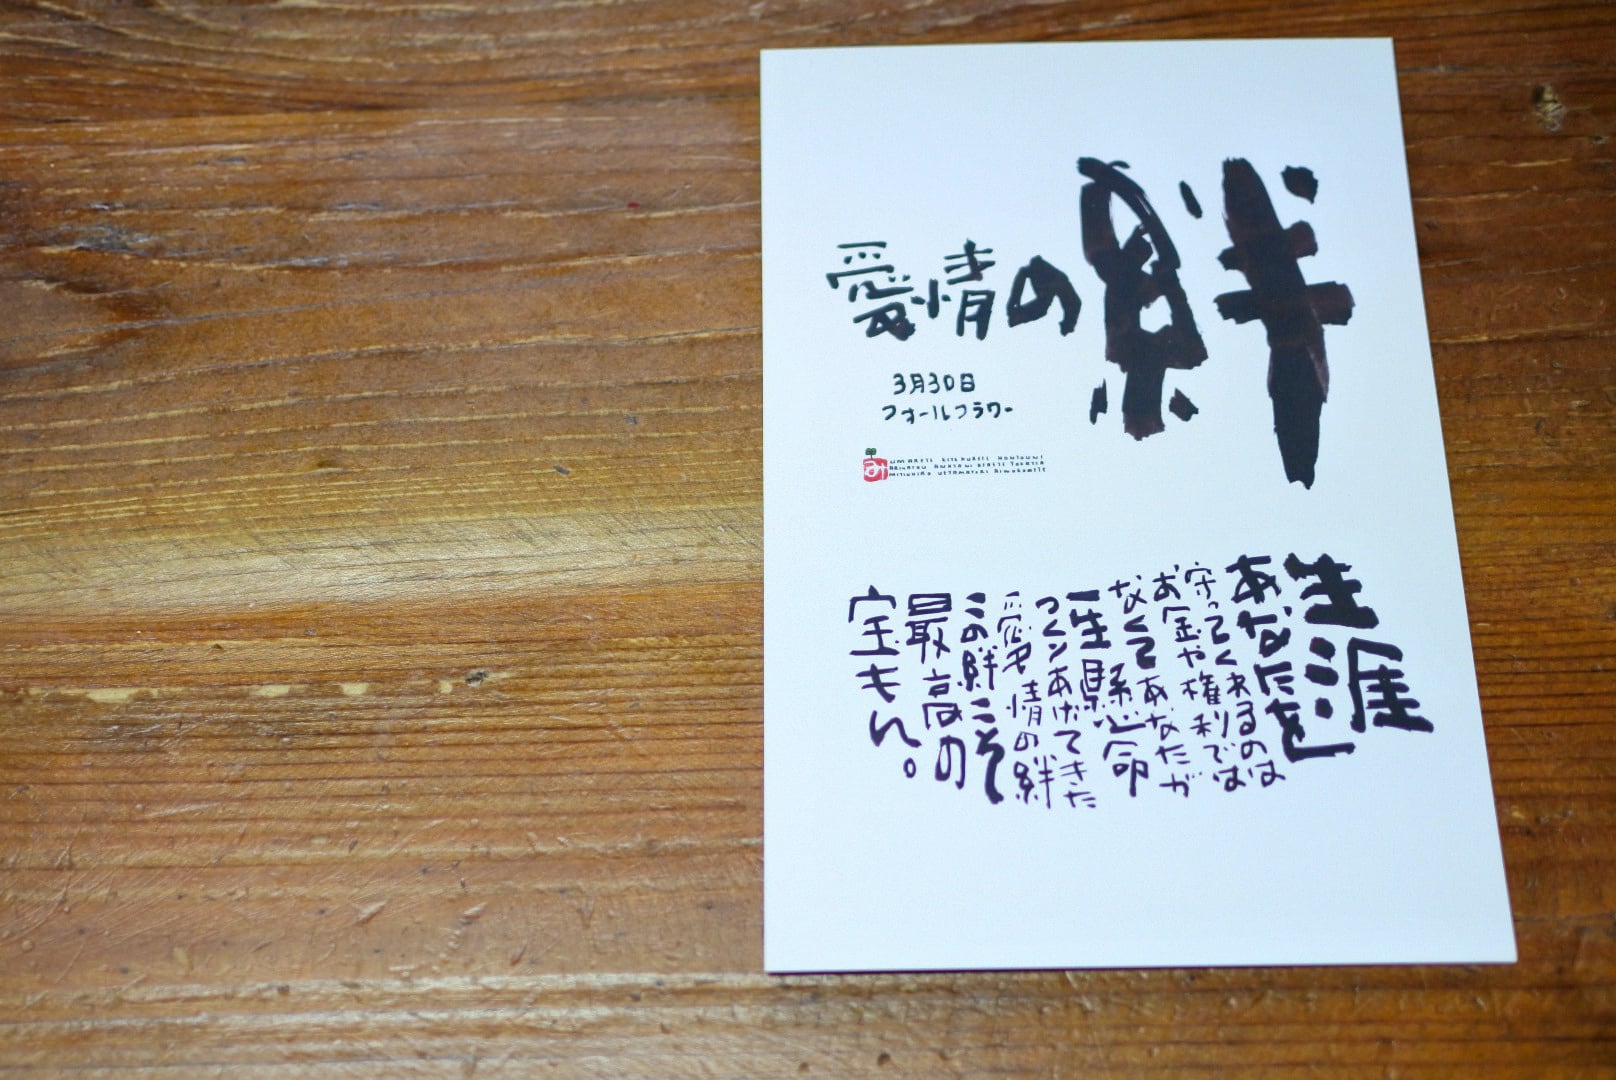 愛情の絆
3月30日
フォールフラワー
み
UMARETE KITEKURETE HONTOUNI
ARIGATOU
生涯
あなたを
守ってくれるのは
お金や権利では
なくてあなたが
一生懸命
つくりあげてきた
愛情の絆
この絆こそ
最高の
宝もん。